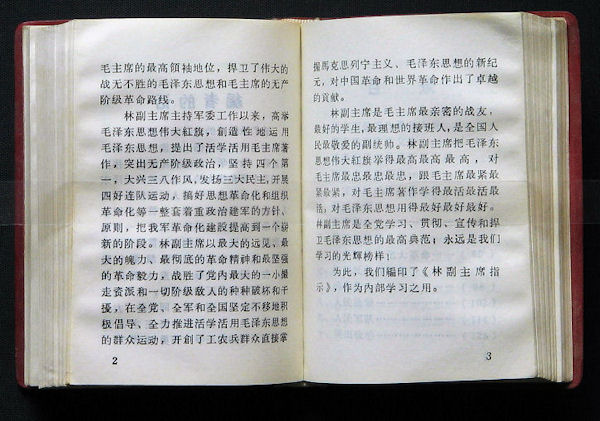 毛主席的最高領袖地位，捍卫了伟大的
战无不胜的毛泽东思想和毛主席的无产
阶级革命路线。
林副主席主持军委工作以来，高举
毛泽东思想伟大紅旗，創造性地运用
毛泽东思想，提出了活学活用毛主席著
作，突出无产阶级政治，坚持四个第
一，大兴三八作风，发扬三大民主，开展
四好连队运动，搞好思想革命化和组织
革命化等一整套着重政治建军的方针、
原则，把我军革命化建設提高到一个崭
新的阶段。林副主席以最大的远见、最
大的魄力、最彻底的革命精神和最坚强
的革命毅力，战胜了党内最大的一小撮
走资派和一切阶级敌人的种种破坏和干
扰，在全党、全军和全国坚定不移地积
极倡导、全力推进活学活用毛泽东思想
的群众运动，开創了工农兵群众直接掌
2
握馬克思列宁主义、毛泽东思想的新紀
元，对中国革命和世界革命作出了卓越
的貢献。
林副主席是毛主席最亲密的战友，
最好的学生，最理想的接班人，是全国人
民最敬爱的副统帅。林副主席把毛泽东
思想伟大紅旗举得最高最高最高，对
毛主席最忠最忠最忠，跟毛主席最紧最
紧最紧，对毛主席著作学得最活最活最
活，对毛泽东思想用得最好最好最好。
林副主席是全党学习、贯彻、宣传和捍
卫毛泽东思想的最高典范；永远是我们
学习的光輝榜样！
为此，我们編印了《林副主席指
示》，作为内部学习之用。
3